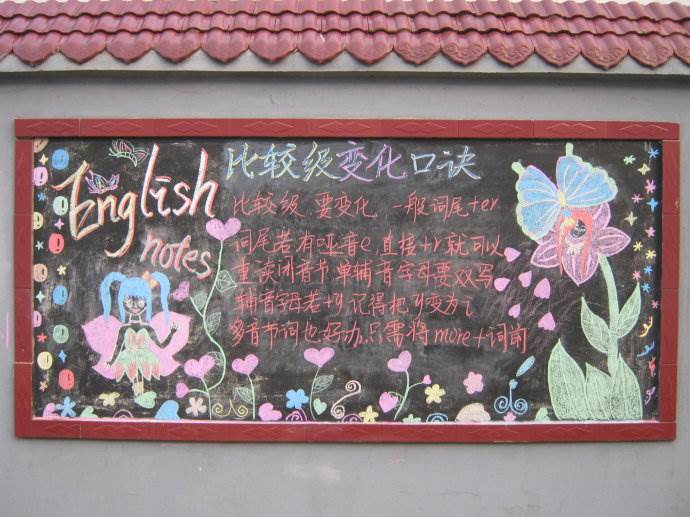 English
notes
比较级变化口诀
比较级要变化,一般词尾+er
词尾若有哑音e,直接+r就可以
重读闭音节单辅音字母要双写
辅音字母老+y,记得把y变为i
多音节词也好办,只需将more+词前